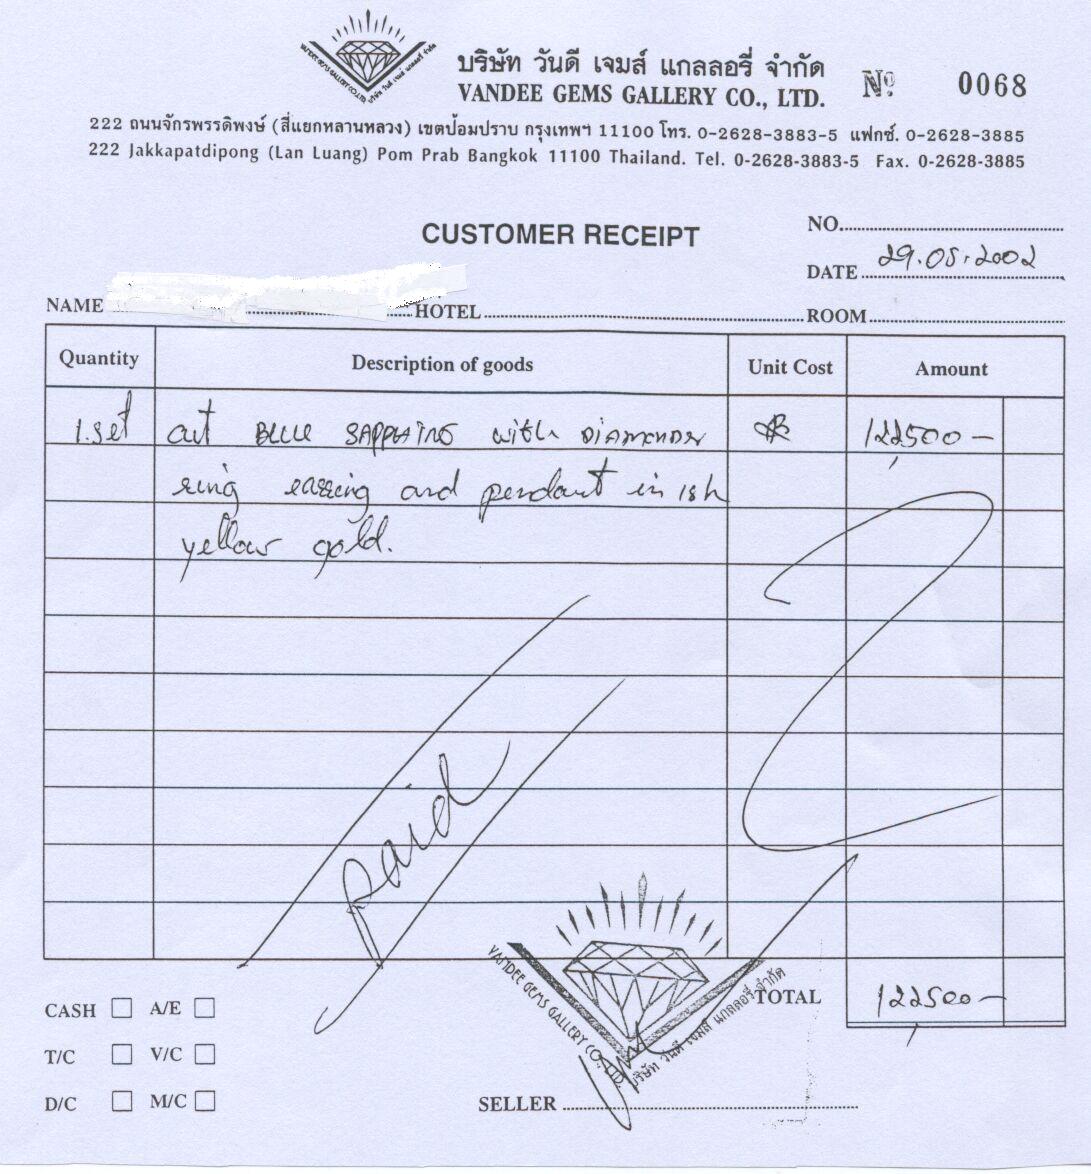 VANDEE GEMS GALLERY CO.,LTD. บริษัท วันดี เจมส์ แกลลอรี่ จำกัด
บริษัท วันดี เจมส์ แกลลอรี่ จำกัด
VANDEE GEMS GALLERY CO., LTD.
Nº 0068
222 ถนนจักรพรรดิพงษ์ (สี่แยกหลานหลวง) เขตป้อมปราบ กรุงเทพฯ 11100 โทร. 0-2628-3883-5 แฟกซ์. 0-2628-3885
222 Jakkapatdipong (Lan Luang) Pom Prab Bangkok 11100 Thailand. Tel. 0-2628-3883-5 Fax. 0-2628-3885
CUSTOMER RECEIPT
NO.
DATE 29.05.2002
NAME HOTEL ROOM
Quantity Description of goods Unit Cost Amount
1.set cut BLUE SAPPHIRE with DIAMONDS 122500-
ring earring and pendant in 18k
yellow gold.
paid
VANDEE GEMS GALLERY CO., LTD. บริษัท วันดี เจมส์ แกลลอรี่ จำกัด
TOTAL 122500-
CASH A/E
T/C V/C
D/C M/C
SELLER